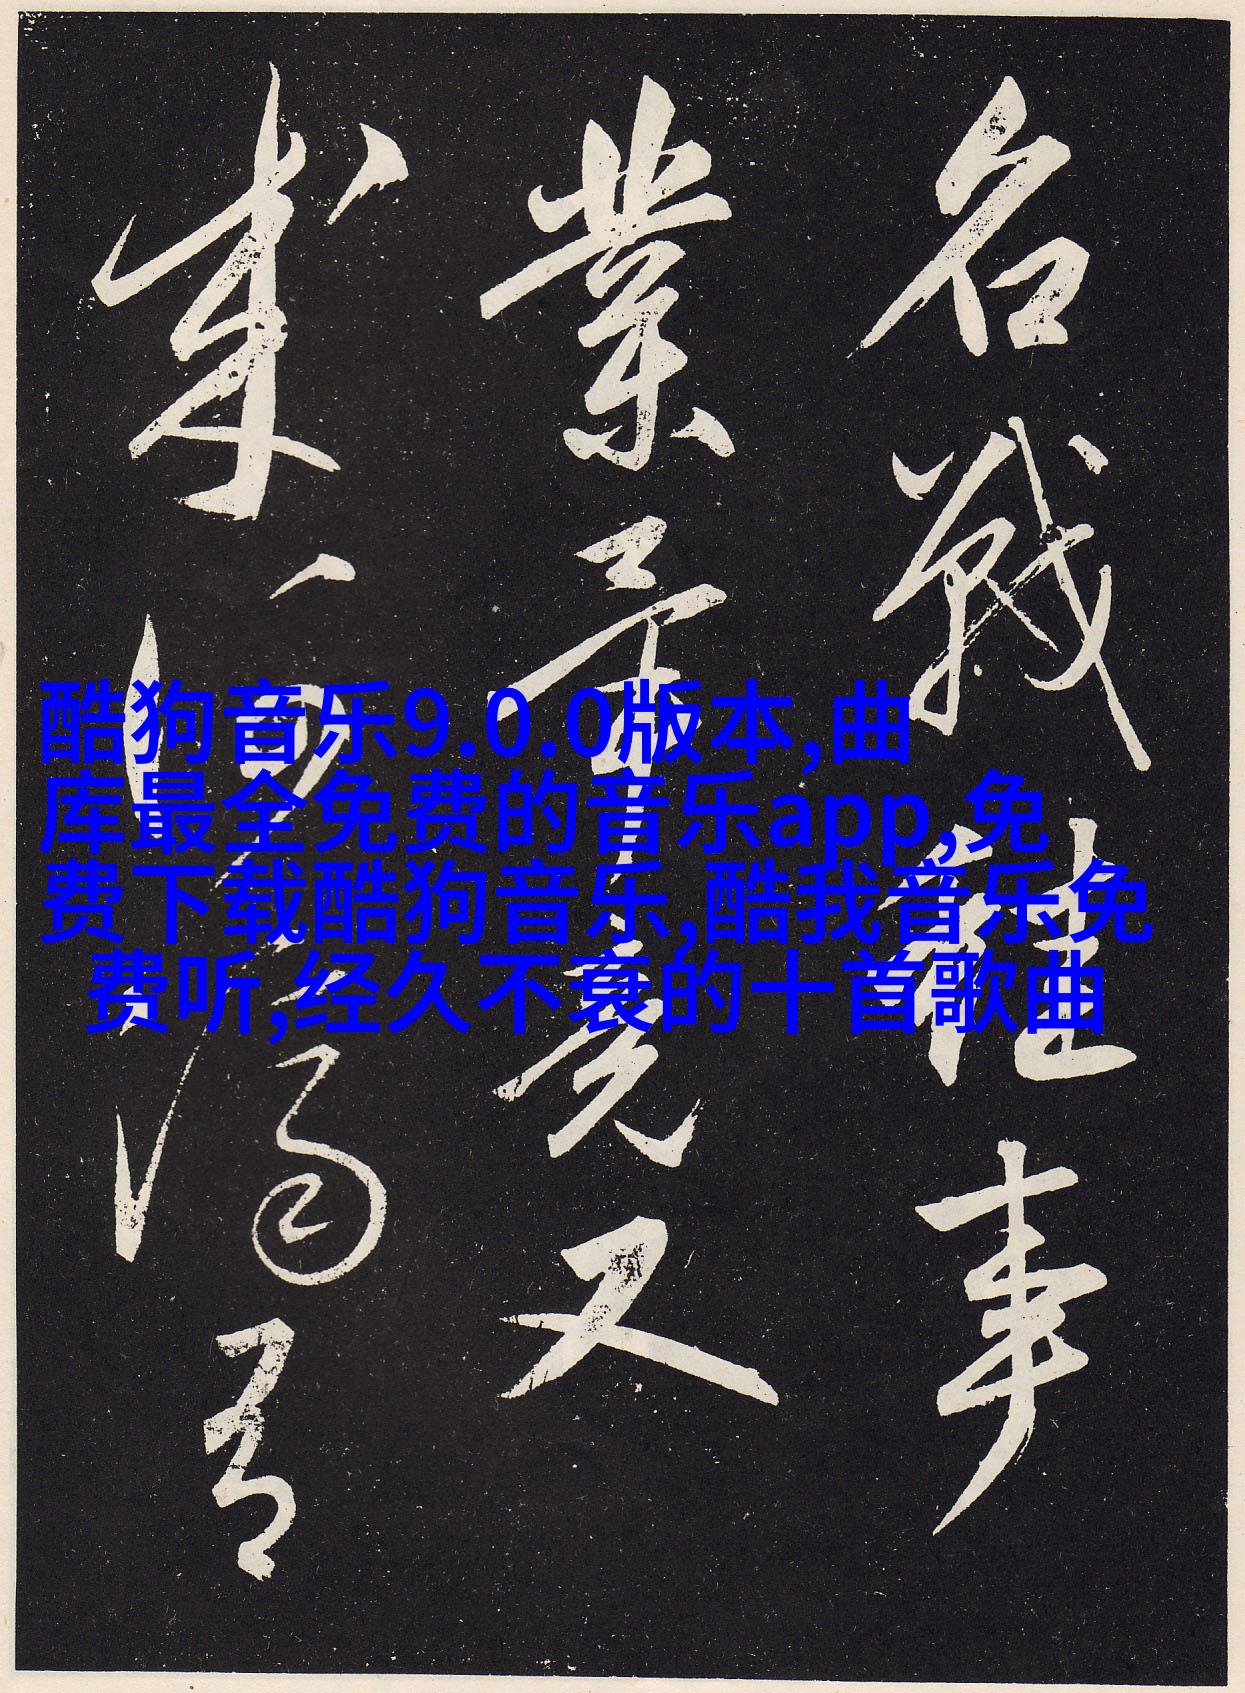 名戦雖事
業年竟又
成何得言
酷狗音乐9.0.0版本,曲
库最全免费的音乐app,免
费下载酷狗音乐,酷我音乐免
费听,经久不衰的十首歌曲